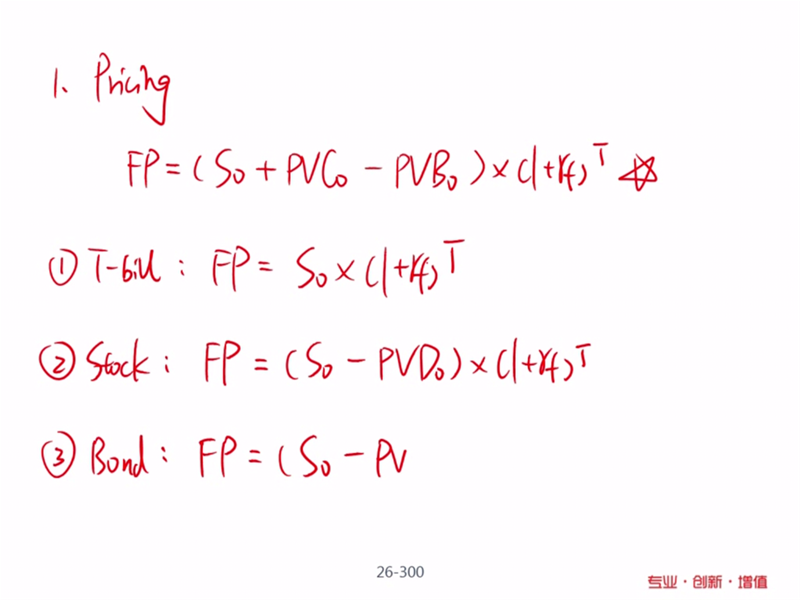 1. Pricing
FP = (S₀ + PVC₀ - PVB₀) × (1+rf)ᵀ ☆
① T-bill : FP = S₀ × (1+rf)ᵀ
② Stock : FP = (S₀ - PVD₀) × (1+rf)ᵀ
③ Bond : FP = (S₀ - PV
26-300
专业·创新·增值